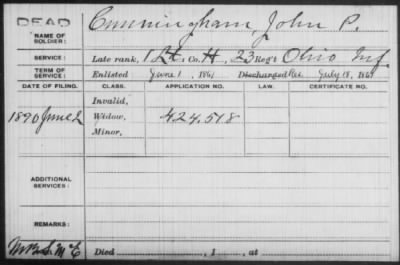 DEAD Cunningham, John P.
NAME OF SOLDIER:
SERVICE: Late rank, 1 Lt; Co. H, 23 Reg't Ohio Inf.
TERM OF SERVICE: Enlisted June 1, 1861 Discharged Res July 18, 1861
DATE OF FILING. CLASS. APPLICATION NO. LAW. CERTIFICATE NO.
Invalid,
1890 June 2 Widow, 424,518
Minor,
ADDITIONAL SERVICES:
REMARKS:
Died , 1 , at